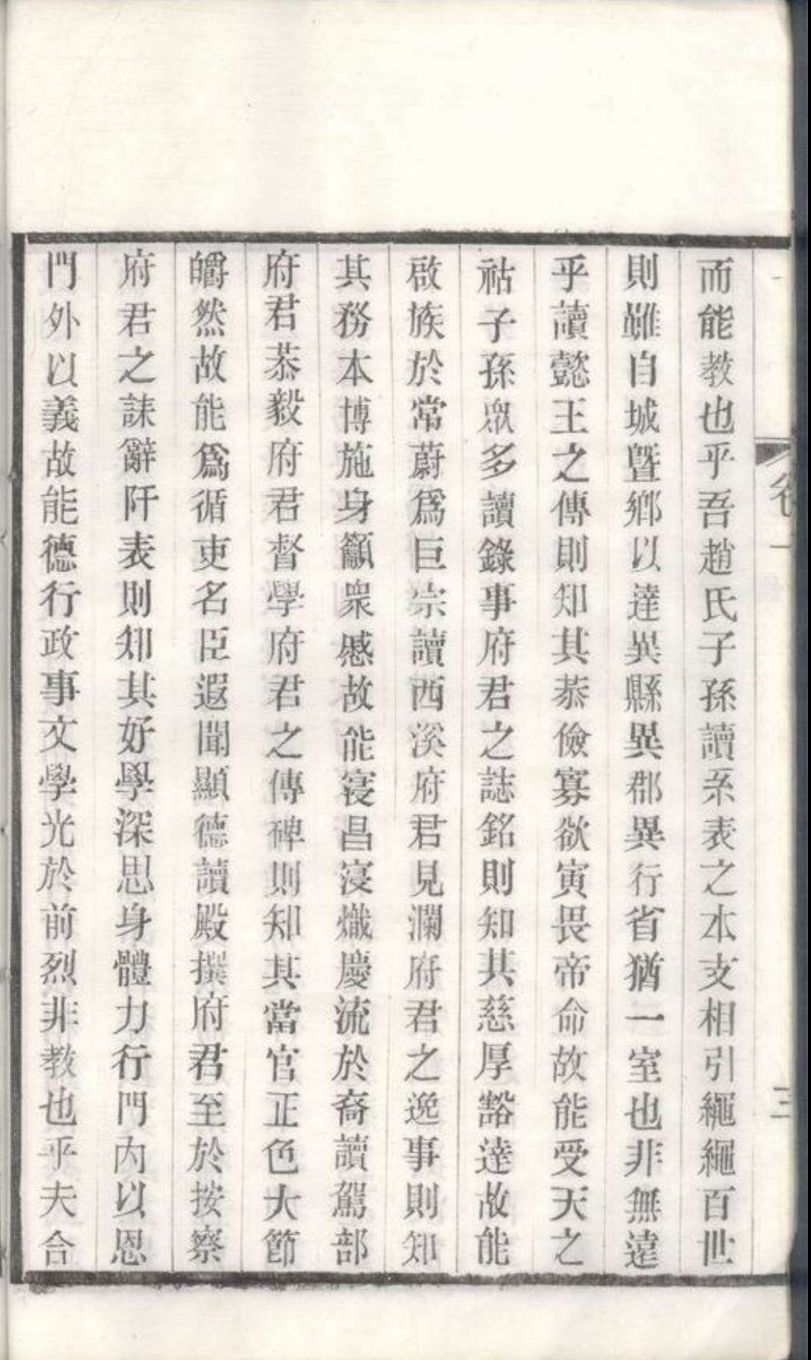 而能教也乎吾趙氏子孫讀系表之本支相引繩繩百世
則雖自城曁鄉以達異縣異郡異行省猶一室也非無遠
乎讀懿王之傳則知其恭儉寡欲寅畏帝命故能受天之
祜子孫眾多讀錄事府君之誌銘則知其慈厚豁達故能
啟族於常蔚爲巨宗讀西溪府君見瀾府君之逸事則知
其務本博施身籲衆慼故能寖昌寖熾慶流於裔讀駕部
府君恭毅府君督學府君之傳碑則知其當官正色大節
皭然故能爲循吏名臣遐聞顯德讀殿撰府君至於按察
府君之誄辭阡表則知其好學深思身體力行門內以恩
門外以義故能德行政事文學光於前烈非教也乎夫合
三